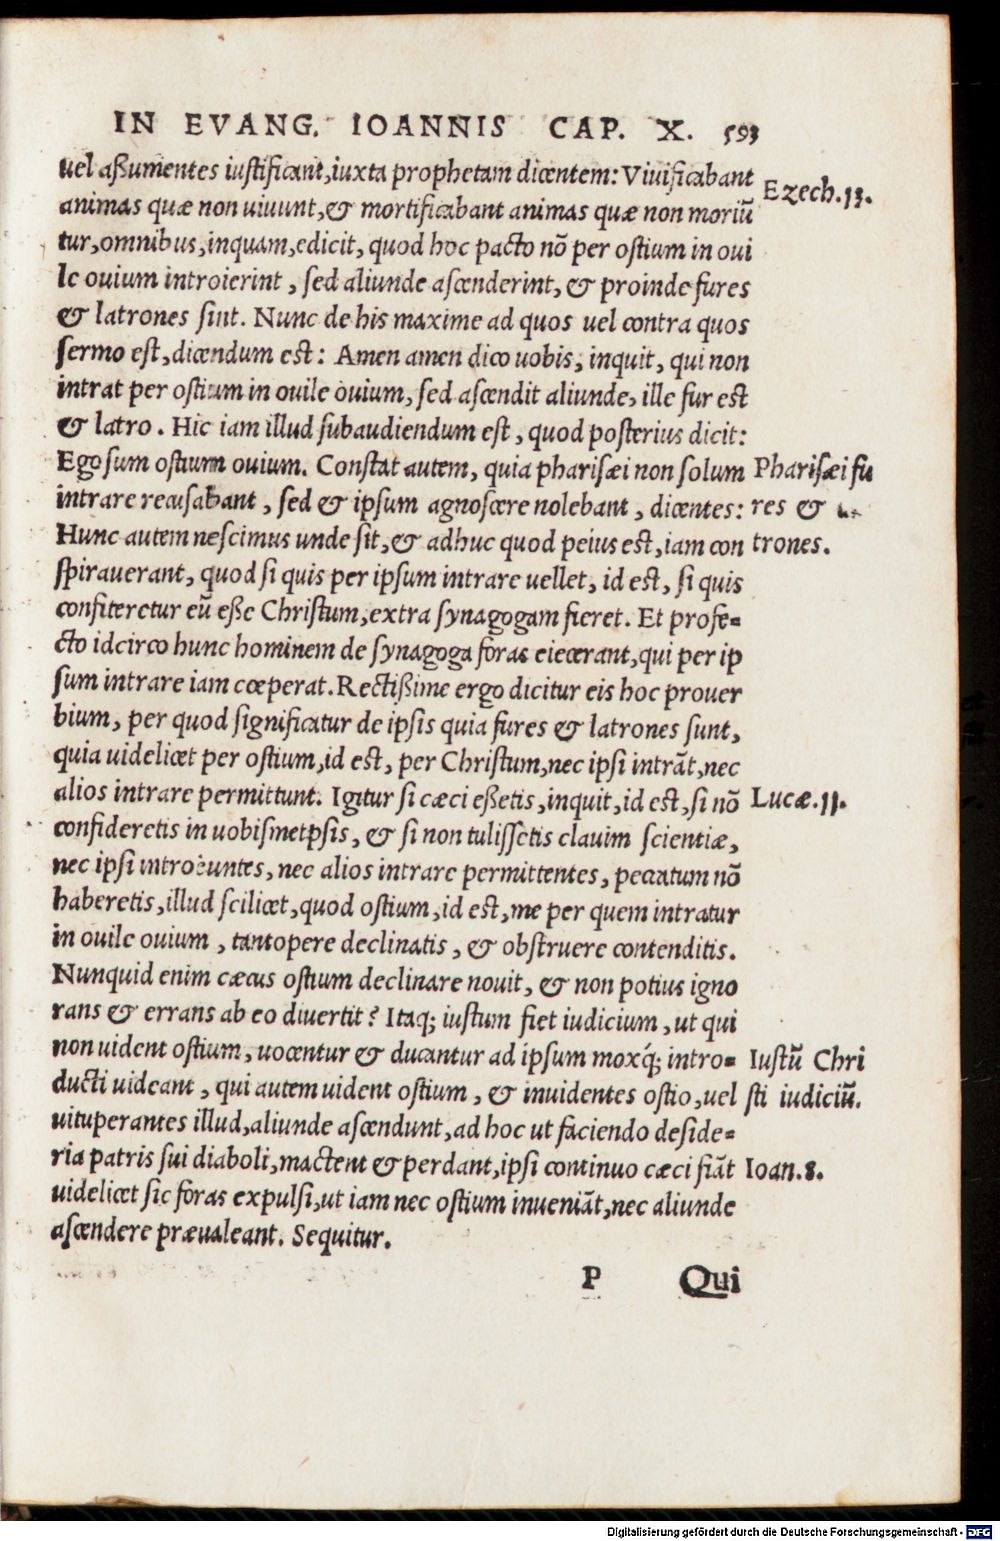 IN EVANG. IOANNIS CAP. X. 593
uel aßumentes iustificant, iuxta prophetam dicentem: Viuificabant
Ezech. 13.
animas quæ non uiuunt, & mortificabant animas quæ non moriũ
tur, omnibus, inquam, edicit, quod hoc pacto nõ per ostium in oui
le ouium introierint, sed aliunde ascenderint, & proinde fures
& latrones sint. Nunc de his maxime ad quos uel contra quos
sermo est, dicendum est: Amen amen dico uobis, inquit, qui non
intrat per ostium in ouile ouium, sed ascendit aliunde, ille fur est
& latro. Hic iam illud subaudiendum est, quod posterius dicit:
Ego sum ostium ouium. Constat autem, quia pharisæi non solum
Pharisæi fu
intrare recusabant, sed & ipsum agnoscere nolebant, dicentes:
res &
Hunc autem nescimus unde sit, & adhuc quod peius est, iam con
trones.
spirauerant, quod si quis per ipsum intrare uellet, id est, si quis
confiteretur eũ eße Christum, extra synagogam fieret. Et profe=
cto idcirco hunc hominem de synagoga foras eiecerant, qui per ip
sum intrare iam cœperat. Rectißime ergo dicitur eis hoc prouer
bium, per quod significatur de ipsis quia fures & latrones sunt,
quia uidelicet per ostium, id est, per Christum, nec ipsi intrãt, nec
alios intrare permittunt. Igitur si cæci eßetis, inquit, id est, si nõ
Lucæ. 11.
confideretis in uobismetpsis, & si non tulissetis clauim scientiæ,
nec ipsi introeuntes, nec alios intrare permittentes, peccatum nõ
haberetis, illud scilicet, quod ostium, id est, me per quem intratur
in ouile ouium, tantopere declinatis, & obstruere contenditis.
Nunquid enim cæcus ostium declinare nouit, & non potius igno
rans & errans ab eo diuertit? Itaq; iustum fiet iudicium, ut qui
non uident ostium, uocentur & ducantur ad ipsum moxq́; intro=
Iustũ Chri
ducti uideant, qui autem uident ostium, & inuidentes ostio, uel
sti iudiciũ.
uituperantes illud, aliunde ascendunt, ad hoc ut faciendo deside=
ria patris sui diaboli, mactent & perdant, ipsi continuo cæci fiãt
Ioan. 8.
uidelicet sic foras expulsi, ut iam nec ostium inueniãt, nec aliunde
ascendere præualeant. Sequitur.
P Qui
Digitalisierung gefördert durch die Deutsche Forschungsgemeinschaft - DFG